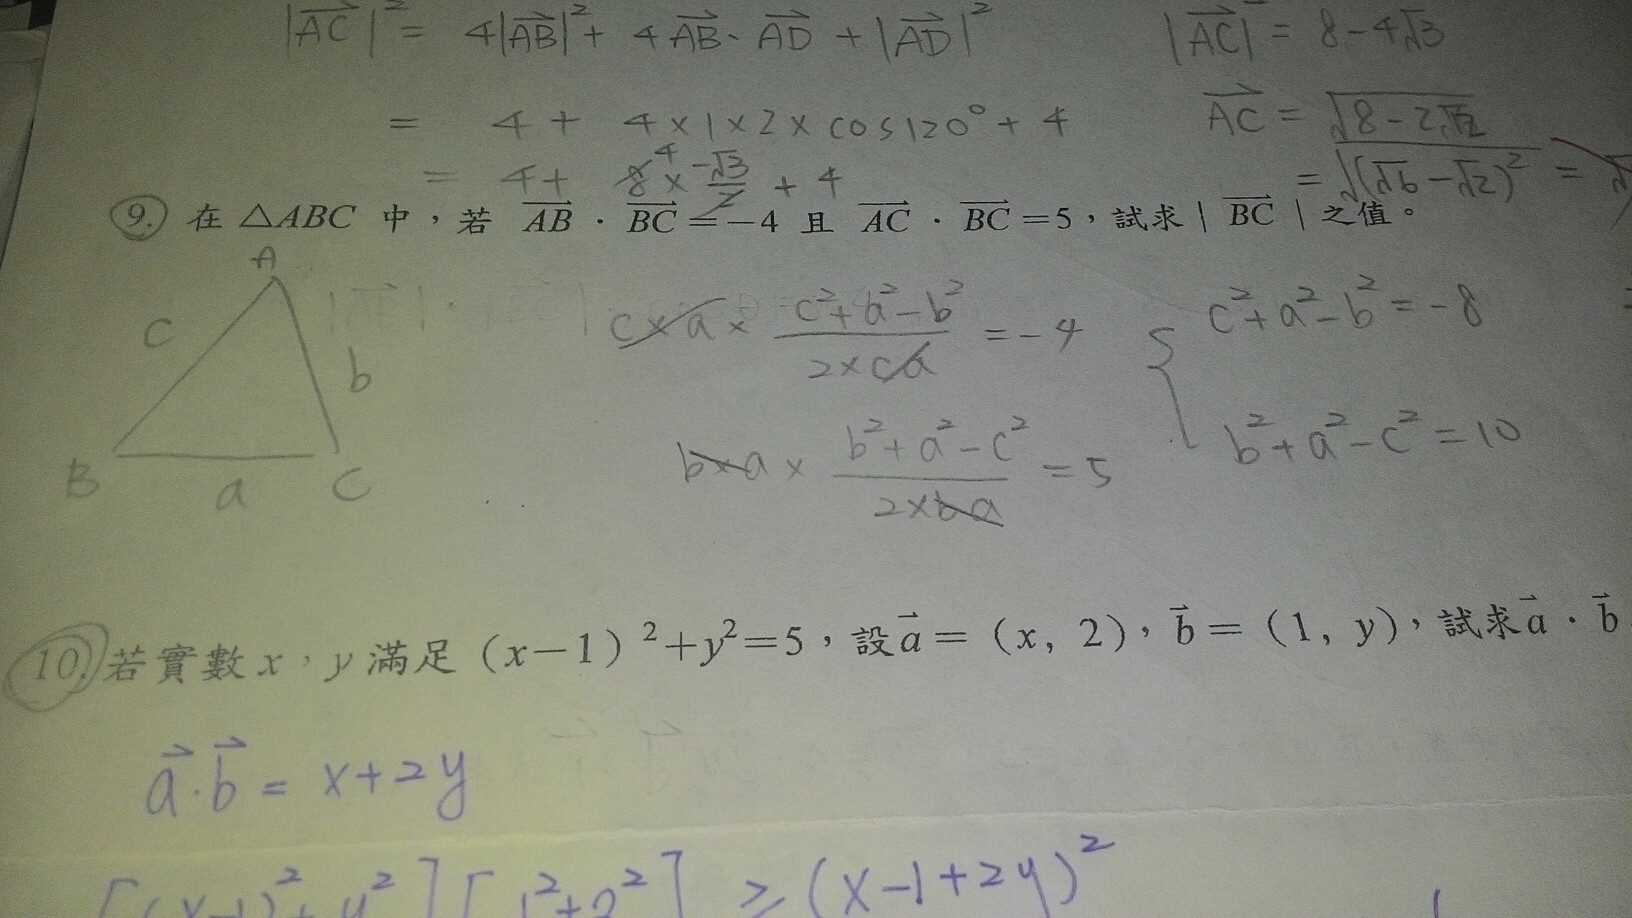 |AC|² = 4|AB|² + 4AB · AD + |AD|²
|AC|² = 8-4√3
= 4 + 4×1×2×cos120° + 4
AC = √8-2√12
= 4 + 8⁴ × -√3/2 + 4
= √(√6-√2)² =
9. 在 △ABC 中,若 AB · BC =-4 且 AC · BC =5,試求 | BC | 之值。
A
c b
B a C
c×a× c²+a²-b² / 2×ca = -4
c²+a²-b² = -8
b×a× b²+a²-c² / 2×ba = 5
b²+a²-c² = 10
10. 若實數 x,y 滿足 (x-1)²+y²=5,設 a = (x, 2),b = (1, y),試求 a · b
a·b = x+2y
[(x-1)²+y²][1²+2²] ≥ (x-1+2y)²